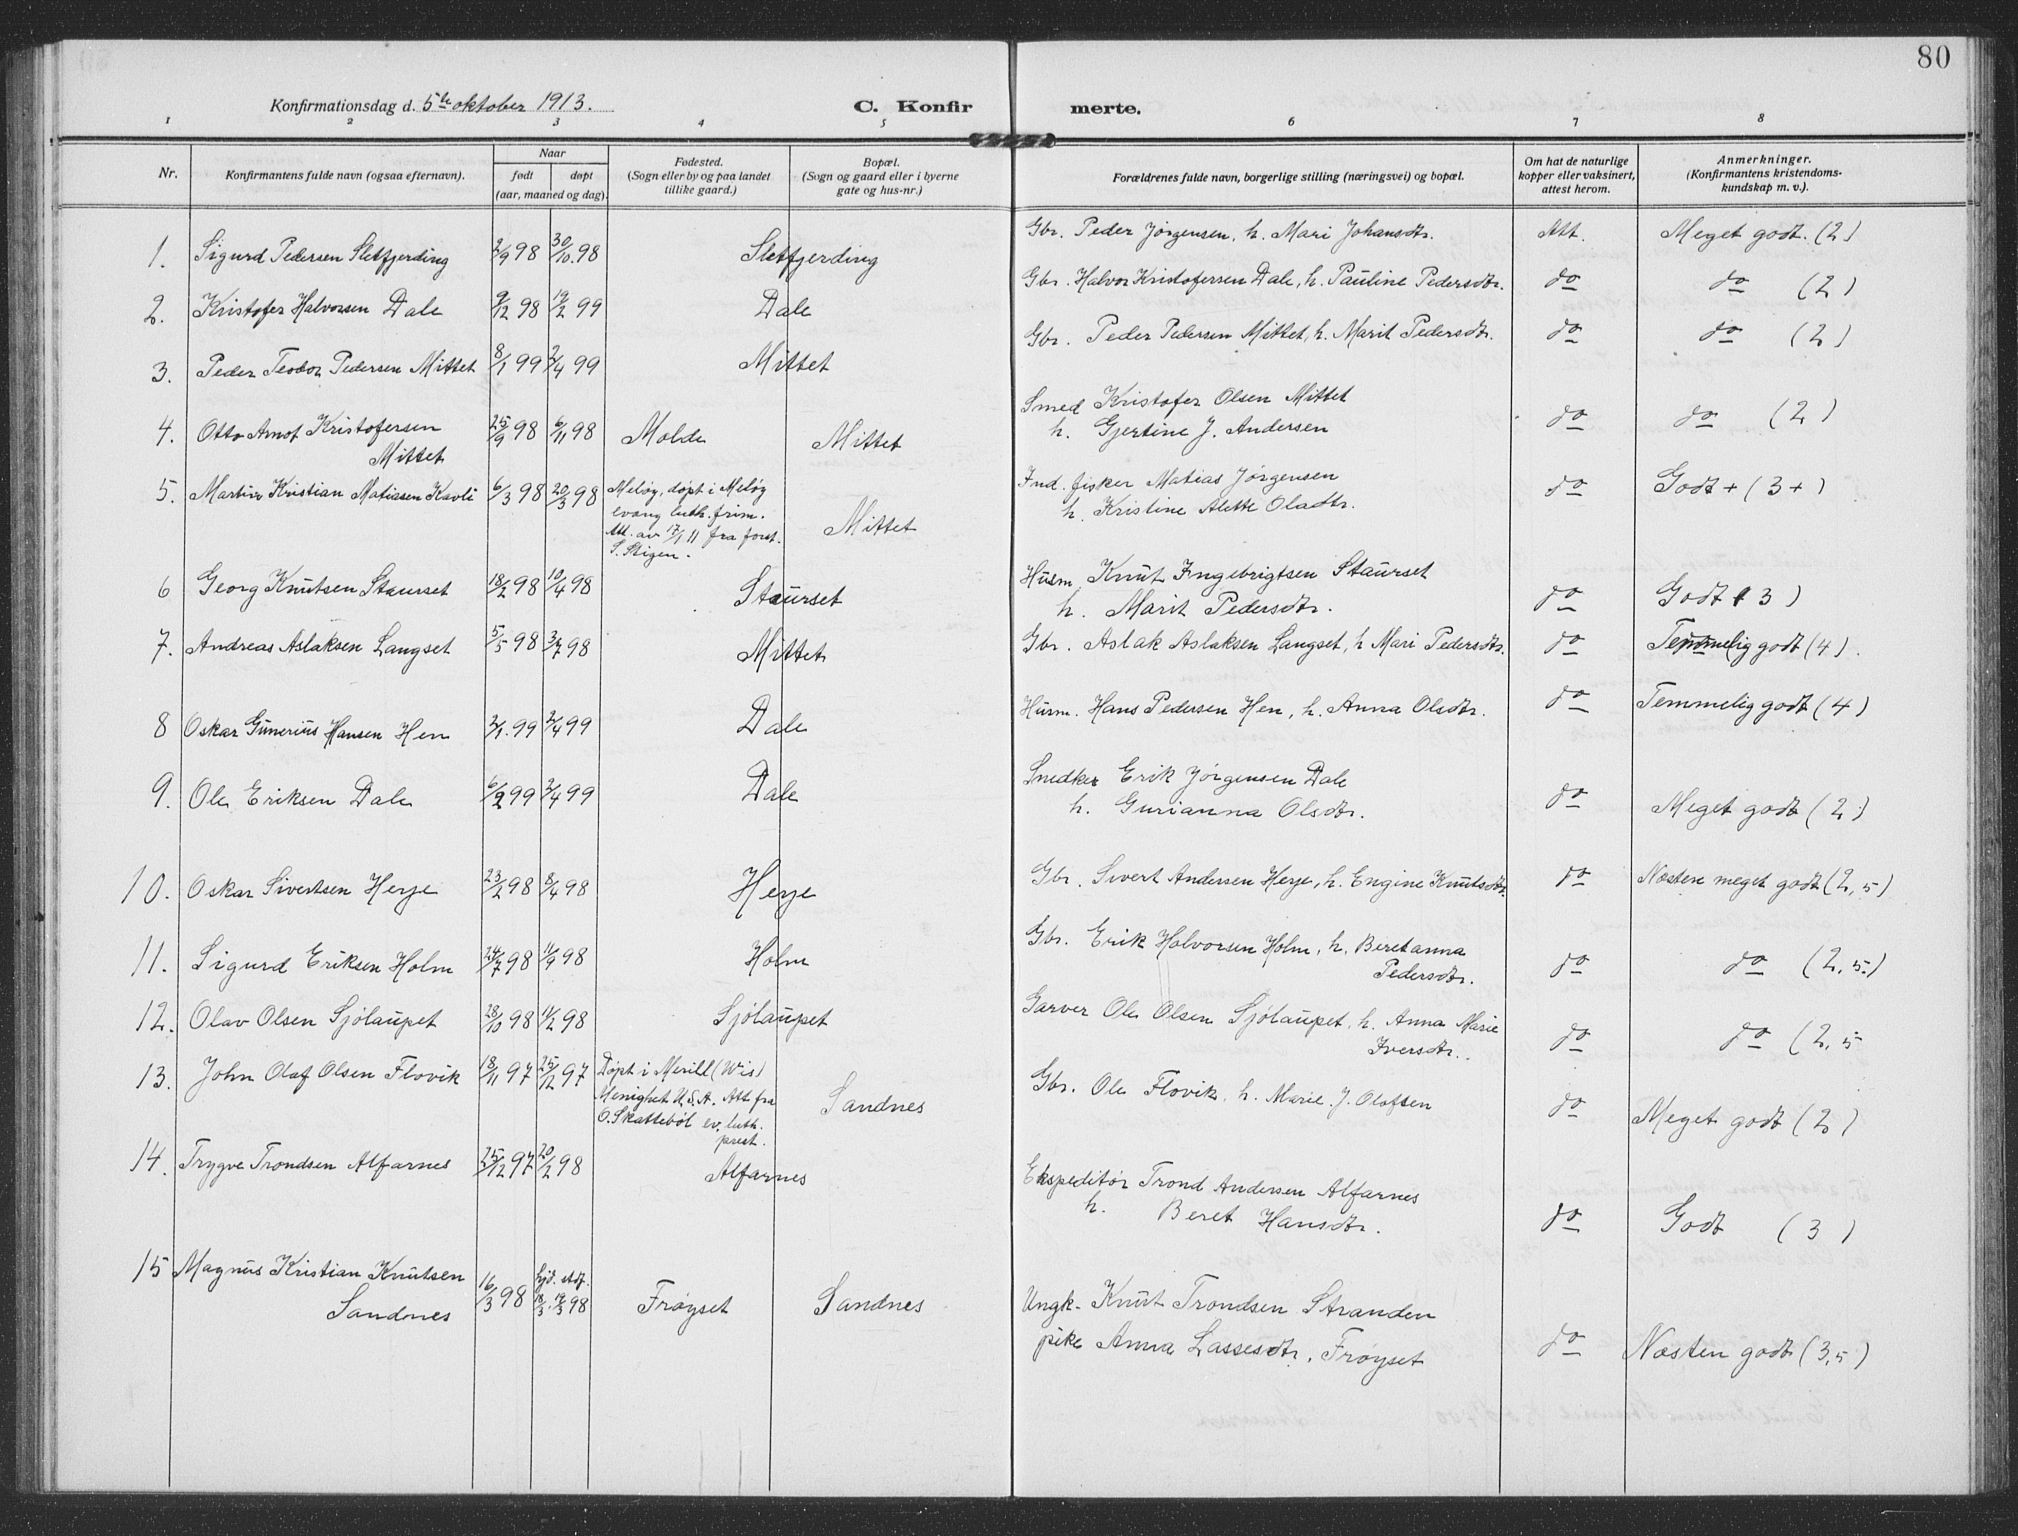 80
Konfirmationsdag d. 5te oktober 1913.
C. Konfirmerte.
1 2 3 4 5 6 7 8
Nr.
Konfirmantens fulde navn (ogsaa efternavn).
Naar
født døpt
(aar, maaned og dag).
Fødested.
(Sogn eller by og paa landet
tillike gaard.)
Bopæl.
(Sogn og gaard eller i byerne
gate og hus-nr.)
Forældrenes fulde navn, borgerlige stilling (næringsvei) og bopæl.
Om hat de naturlige
kopper eller vaksinert,
attest herom.
Anmerkninger.
(Konfirmantens kristendoms-
kundskap m. v.).
1. Sigurd Pedersen Sletfjerding 2/9 98 30/10. 98 Sletfjerding Gbr. Peder Jørgensen, h. Mari Johansdtr. Att. Meget godt. (2)
2. Kristofer Halvorsen Dale 9/12 98 19/2 99 Dale Gbr. Halvor Kristofersen Dale, h. Pauline Pedersdtr. do do (2)
3. Peder Teodor Pedersen Mittet 8/1 99 2/4 99 Mittet Gbr. Peder Pedersen Mittet, h. Marit Pedersdtr. do do (2)
4. Otto Arnot Kristofersen
Mittet 25/9 98 6/11 98 Molde Mittet Smed Kristofer Olsen Mittet
h. Gjertine J. Andersen do do (2)
5. Martin Kristian Matiasen Kavli 6/3 98 20/3 98 Meløy, døpt i Meløy
evang. luth. frim.
Att. av 17/1 11 fra forst.
S. Stigen.
Mittet Ind. fisker Matias Jørgensen
h. Kristine Alette Oladtr. do Godt + (3+)
6 Georg Knutsen Staurset 18/2 98 10/4 98 Staurset Husm. Knut Ingebrigtsen Staurset
h. Marit Pedersdtr. do Godt (3)
7. Andreas Aslaksen Langset 5/5 98 3/7 98 Mittet Gbr. Aslak Aslaksen Langset, h Mari Pedersdtr. do Temmelig godt (4).
8 Oskar Gunerius Hansen Hen 2/1. 99 2/4 99 Dale Husm. Hans Pedersen Hen, h. Anna Olsdtr. do Temmelig godt (4)
9. Ole Eriksen Dale 6/2 99 2/4 99 Dale Snedker Erik Jørgensen Dale
h. Gurianna Olsdtr. do Meget godt (2)
10. Oskar Sivertsen Herje 23/2 98 8/4 98 Herje Gbr. Sivert Andersen Herje, h. Engine Knutsdtr. do Næsten meget godt (2,5)
11. Sigurd Eriksen Holm 24/7 98 11/9 98 Holm Gbr. Erik Halvorsen Holm, h. Beretanna
Pedersdtr. do do (2,5)
12. Olav Olsen Sjølaupet 28/10 98 11/2 98 Sjølaupet Garver Ole Olsen Sjølaupet, h. Anna Marie
Iversdtr. do do (2,5
13. John Olaf Olsen Flovik 18/11 97 25/12 97 Døpt i Merill (Wis)
Menighet U.S.A. Att fra
O. Skattebøl ev. luth.
prest.
Sandnes Gbr. Ole Flovik, h. Marie J. Olafsen do Meget godt (2)
14. Trygve Trondsen Alfarnes 25/12 97 20/2 98 Alfarnes Ekspeditør Trond Andersen Alfarnes
h. Beret Hansdtr. do Godt (3)
15 Magnus Kristian Knutsen
Sandnes 16/3 98 hjd. stdf.
18/3. 19/3 98 Frøyset Sandnes Ungk. Knut Trondsen Stranden
pike Anna Lassesdtr. Frøyset do Næsten godt (3,5)